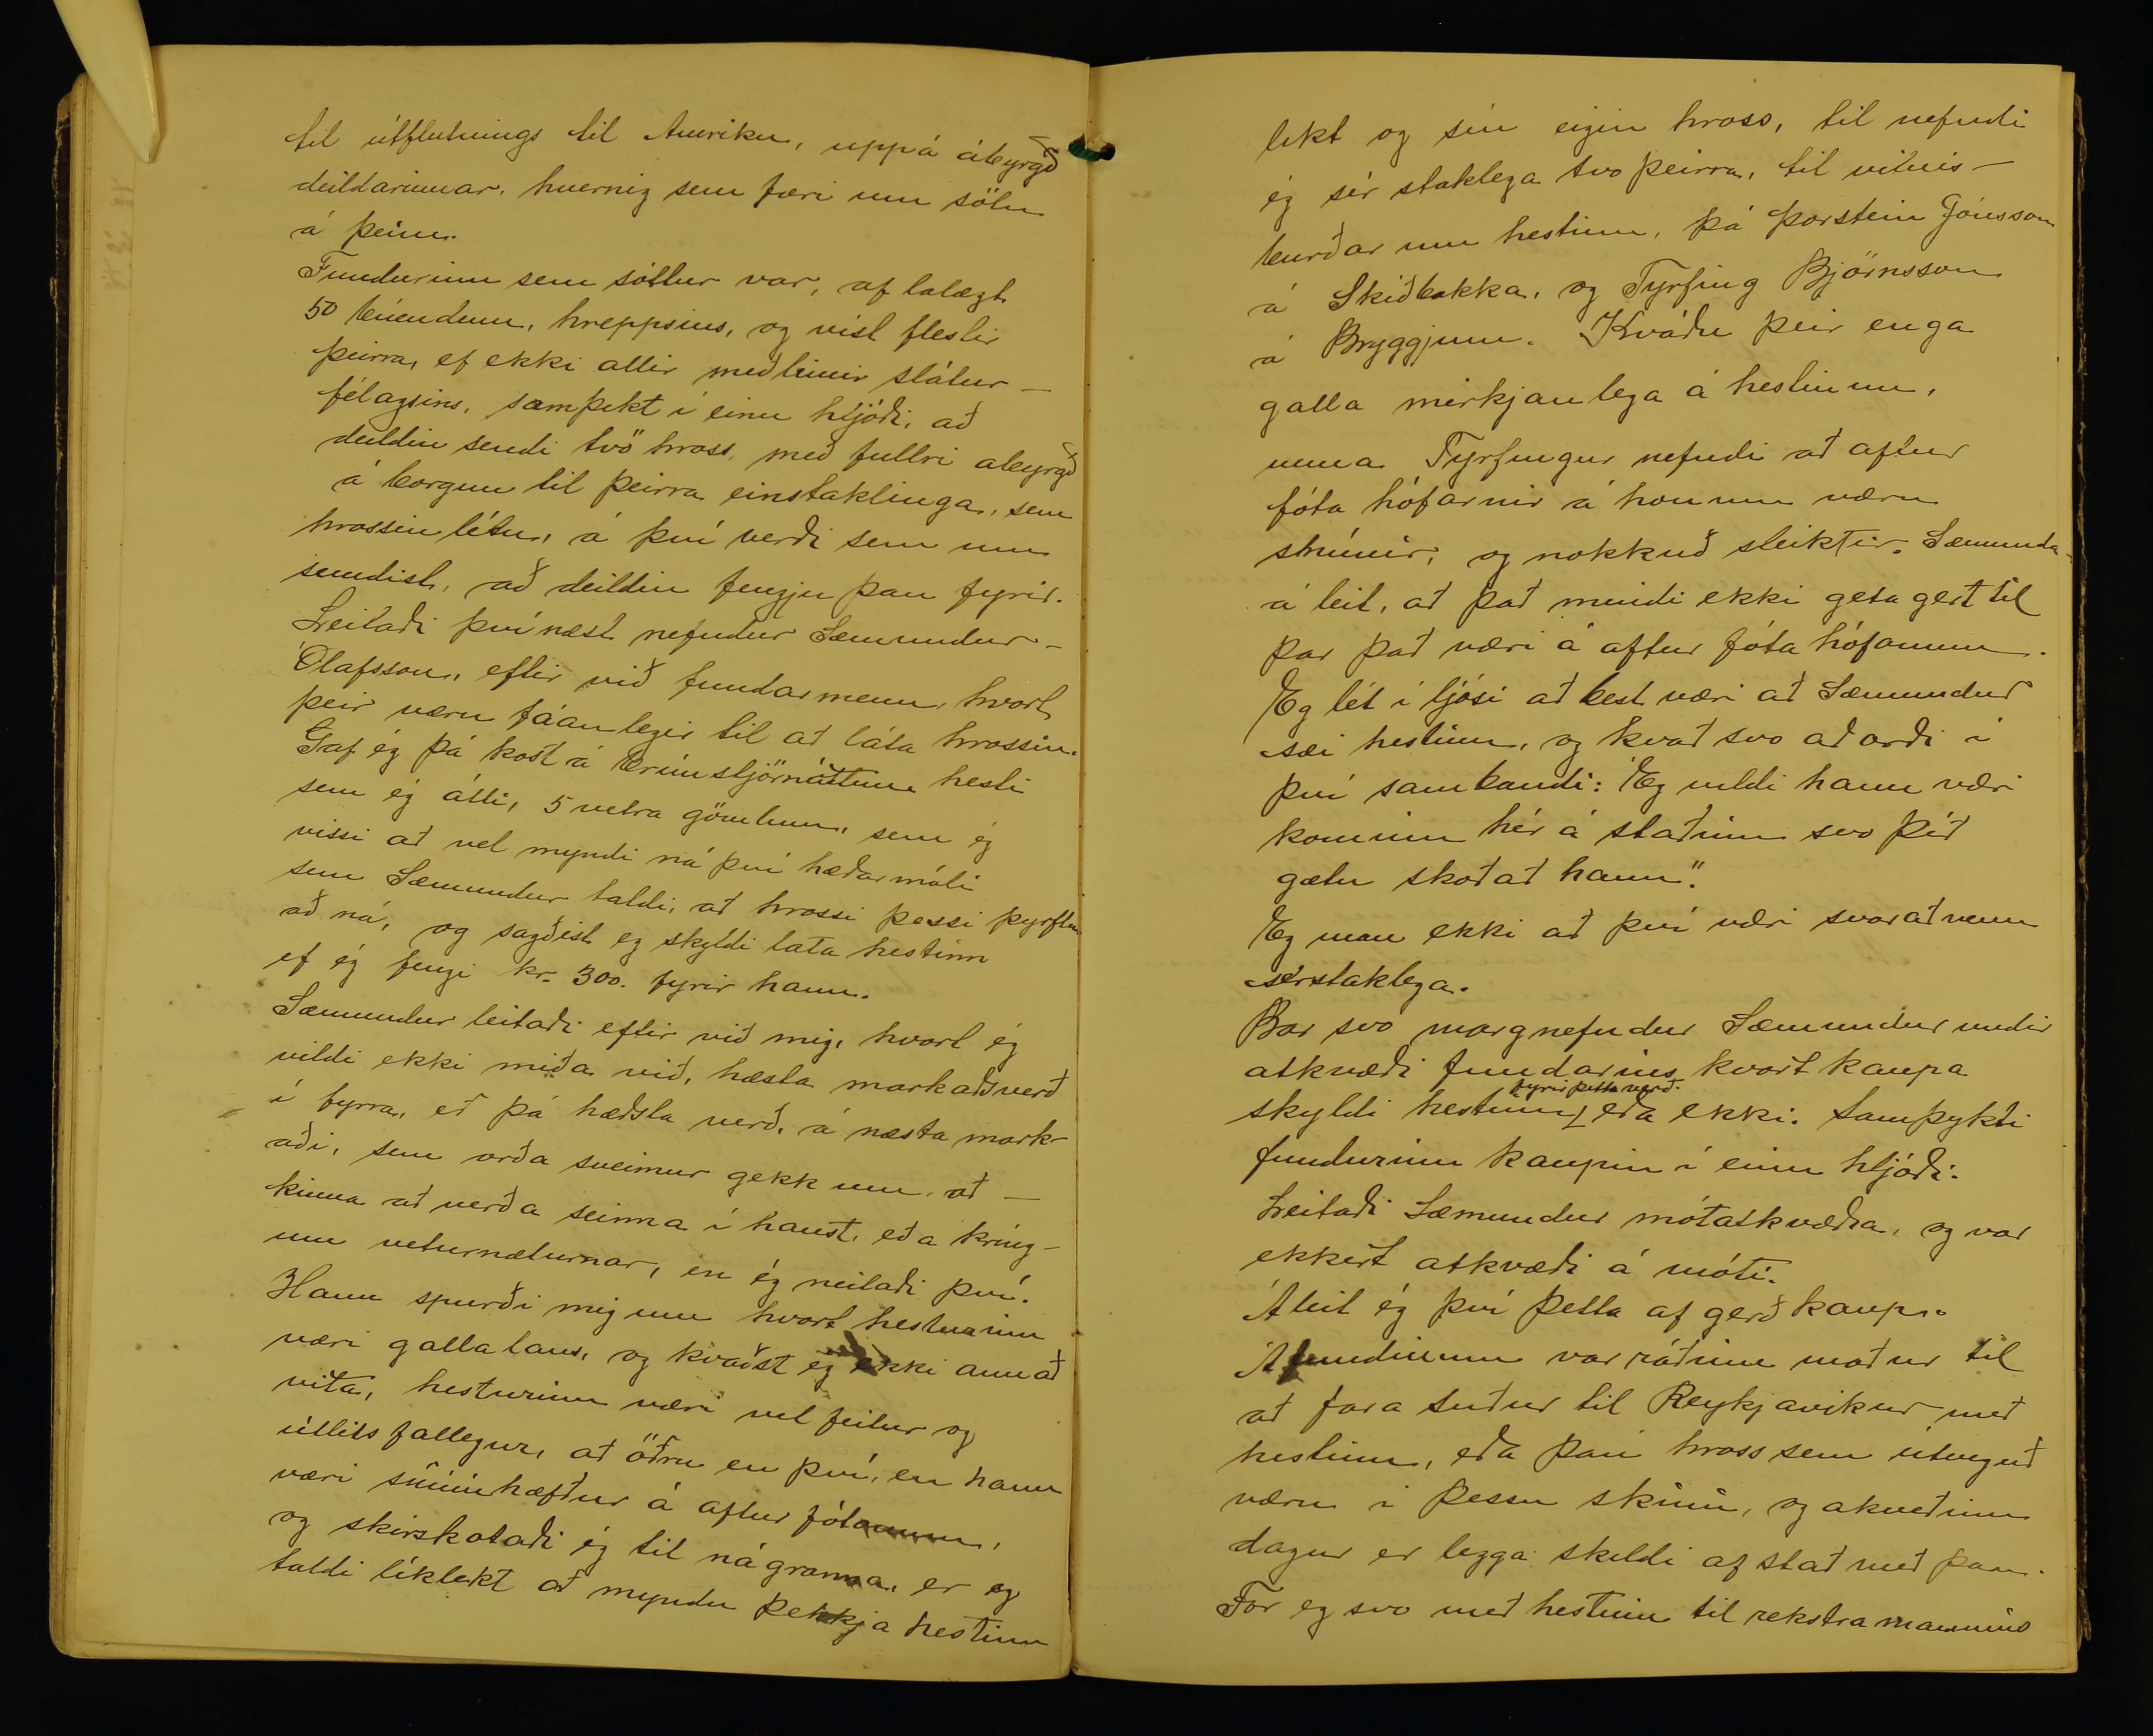 til útflutnings til Ameriku, uppá ábyrgð
deildarinnar, hvernig sem færi um sölu
á þeim.
Fundurinn sem sóttur var, af lalægt
50 búendum, hreppsins, og vist flestir
þeirra, ef ekki allir meðlimir slátur-
félagsins, samþikt í einu hljóði, að
deildin sendi tvö hross, með fullri abyrgð
á borgun til þeirra einstaklinga, sem
hrossin létu, á því verði sem um
semdist, að deildin fengju þau fyrir.
Leitaði því næst nefndur Sæmundur-
Ólafsson, eftir við fundarmenn, hvort
þeir væru fáanlegir til að láta hrossin.
Gaf ég þá kost á brúnstjörnóttum hesti
sem ég átti, 5 vetra gömlum, sem ég
vissi að vel myndi ná því hæðarmáli
sem Sæmundur taldi, at hrossi þessi þyrftu
að ná, og sagðist eg skyldi lata hestinn
ef ég fengi kr. 300. fyrir hann.
Sæmundur leitaði eftir við mig, hvort ég
vildi ekki miða við, hæsta markaðsverð
í fyrra, eð þá hæðsta verð, á næsta mark-
aði, sem orða sveimur gekk um, at -
kinna at verða seinna í haust, eða kring-
um veturnæturnar, en ég neitaði því.
Hann spurði mig um hvort hesturinn
væri gallalaus, og kvaðst ég ekki annað
vita, hesturinn væri vel feitur og
útlits fallegur, at öðru en því, en hann
væri snúinhæfður á aftur fótonum,
og skirskotaði ég til nágranna, er eg
taldi líklekt at myndu þekkja hestinn
likt og sín eigin hross, til nefndi
ég sér staklega tvo þeirra, til vitnis-
burðar um hestinn, þá Þorstein Jónsson
á Skiðbakka, og Tyrfing Björnsson
á Bryggjum. Kváðu þeir enga
galla mirkjanlega á hestinum,
nema Tyrfingur nefndi at aftur
fóta hófarnir á honum væru
snúnir, og nokkuð sleiktir. Sæmunda-
á leit, at þat mindi ekki geta gert til
þar þat væri á aftur fóta hófonum.
Eg lét í ljósi at best væri at Sæmundur
sæi hestinn, og kvat svo at orði í
því sambandi: "Eg vildi hann væri
kominn hér á staðinn svo þið
gætu skoðat hann".
Eg man ekki að því væri svarat nema
sérstaklega.
Bar svo margnefndur Sæmundur undir
atkvæði fundarins, kvort kaupa
skyldi hestinn fyrir þetta verð. eða ekki. Samþykti
fundurinn kaupin í einu hljóði.
Leitaði Sæmundur mótatkvæða, og var
ekkert atkvæði á móti.
Áleit ég því þetta af gerð kaup.
Á fundinum var ráðinn maður til
at fara suður til Reykjavikur með
hestinn, eða þau hross sem útveguð
væru í þessu skini, og akveðinn
dagur er legga skildi af stað með þau.
Fór eg svo með hestinn til rekstramannins